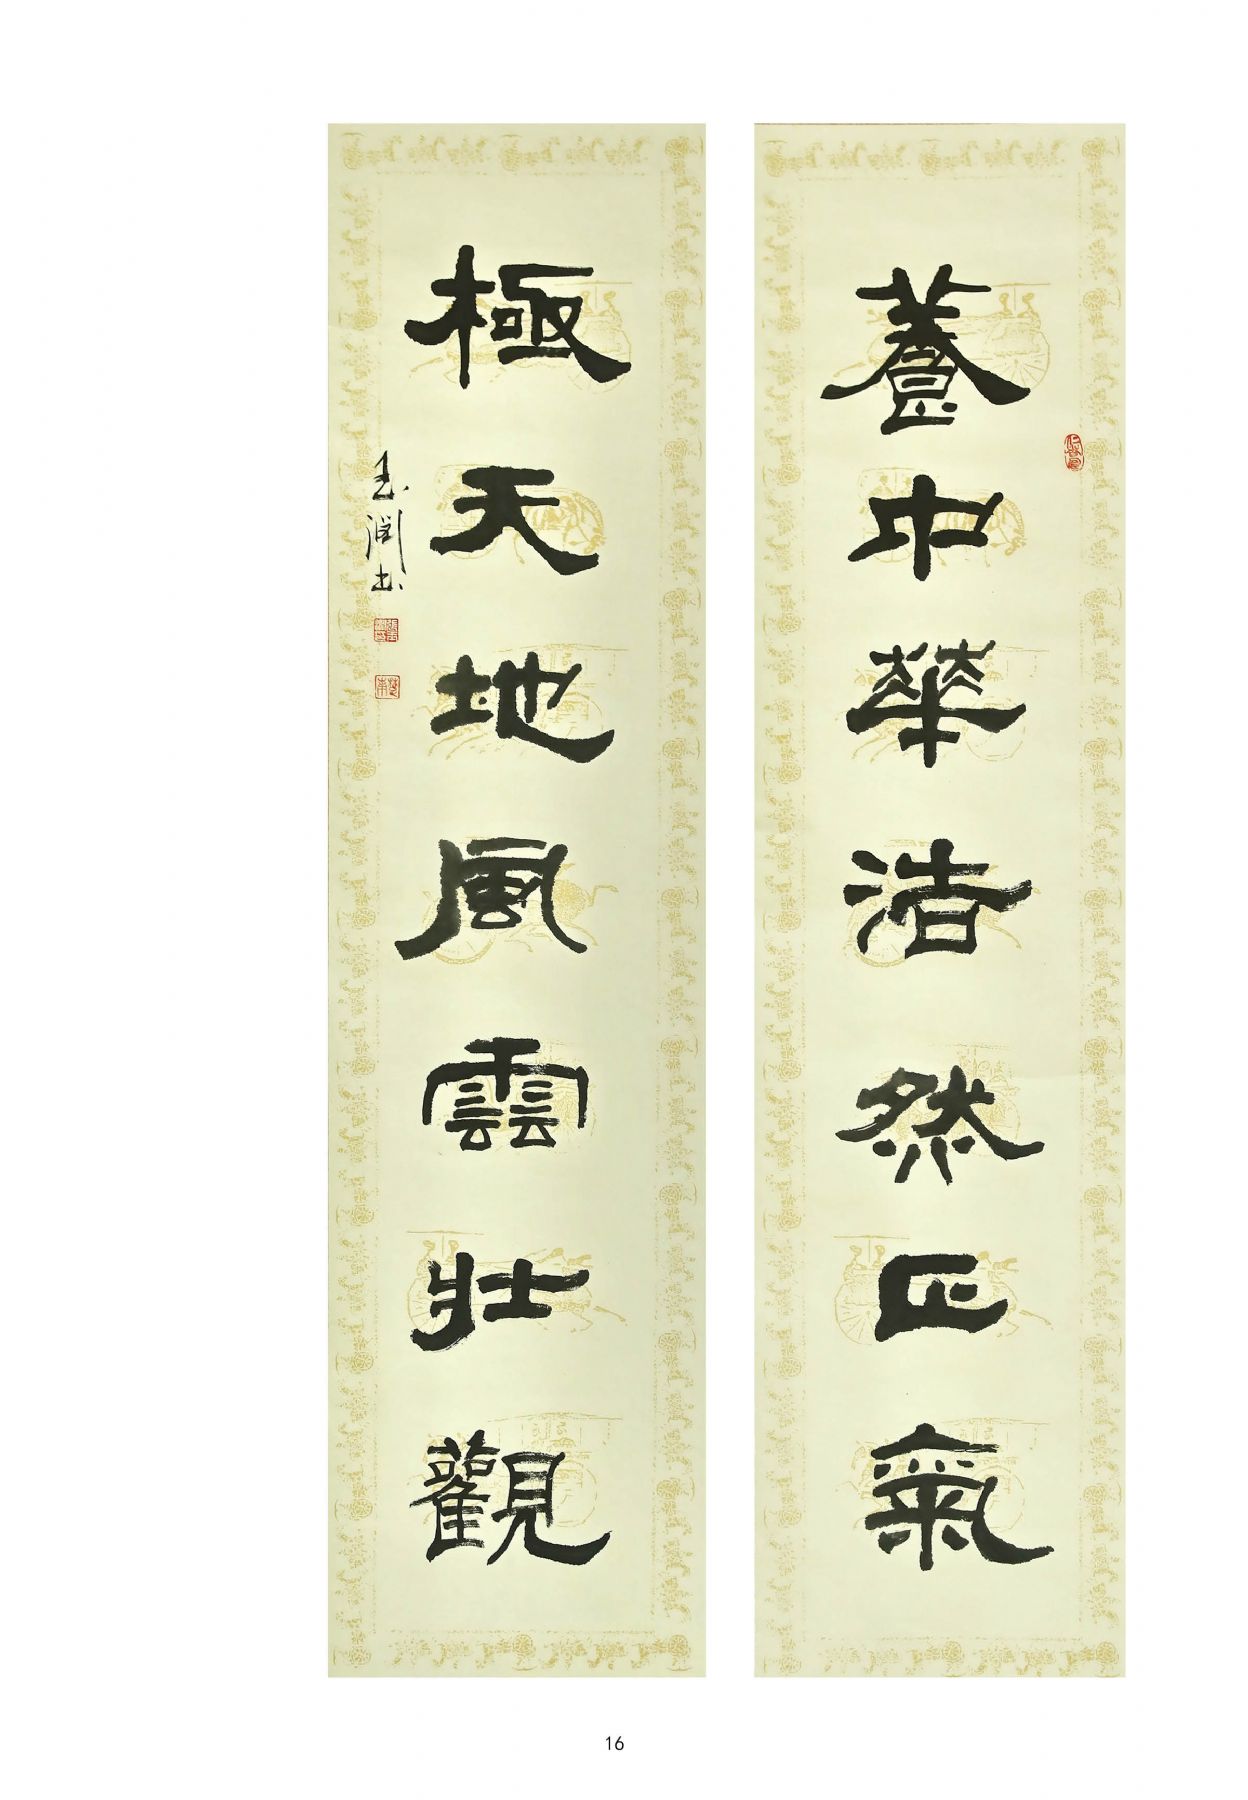 養中華浩然正氣
極天地風雲壯觀
玉潤書
16